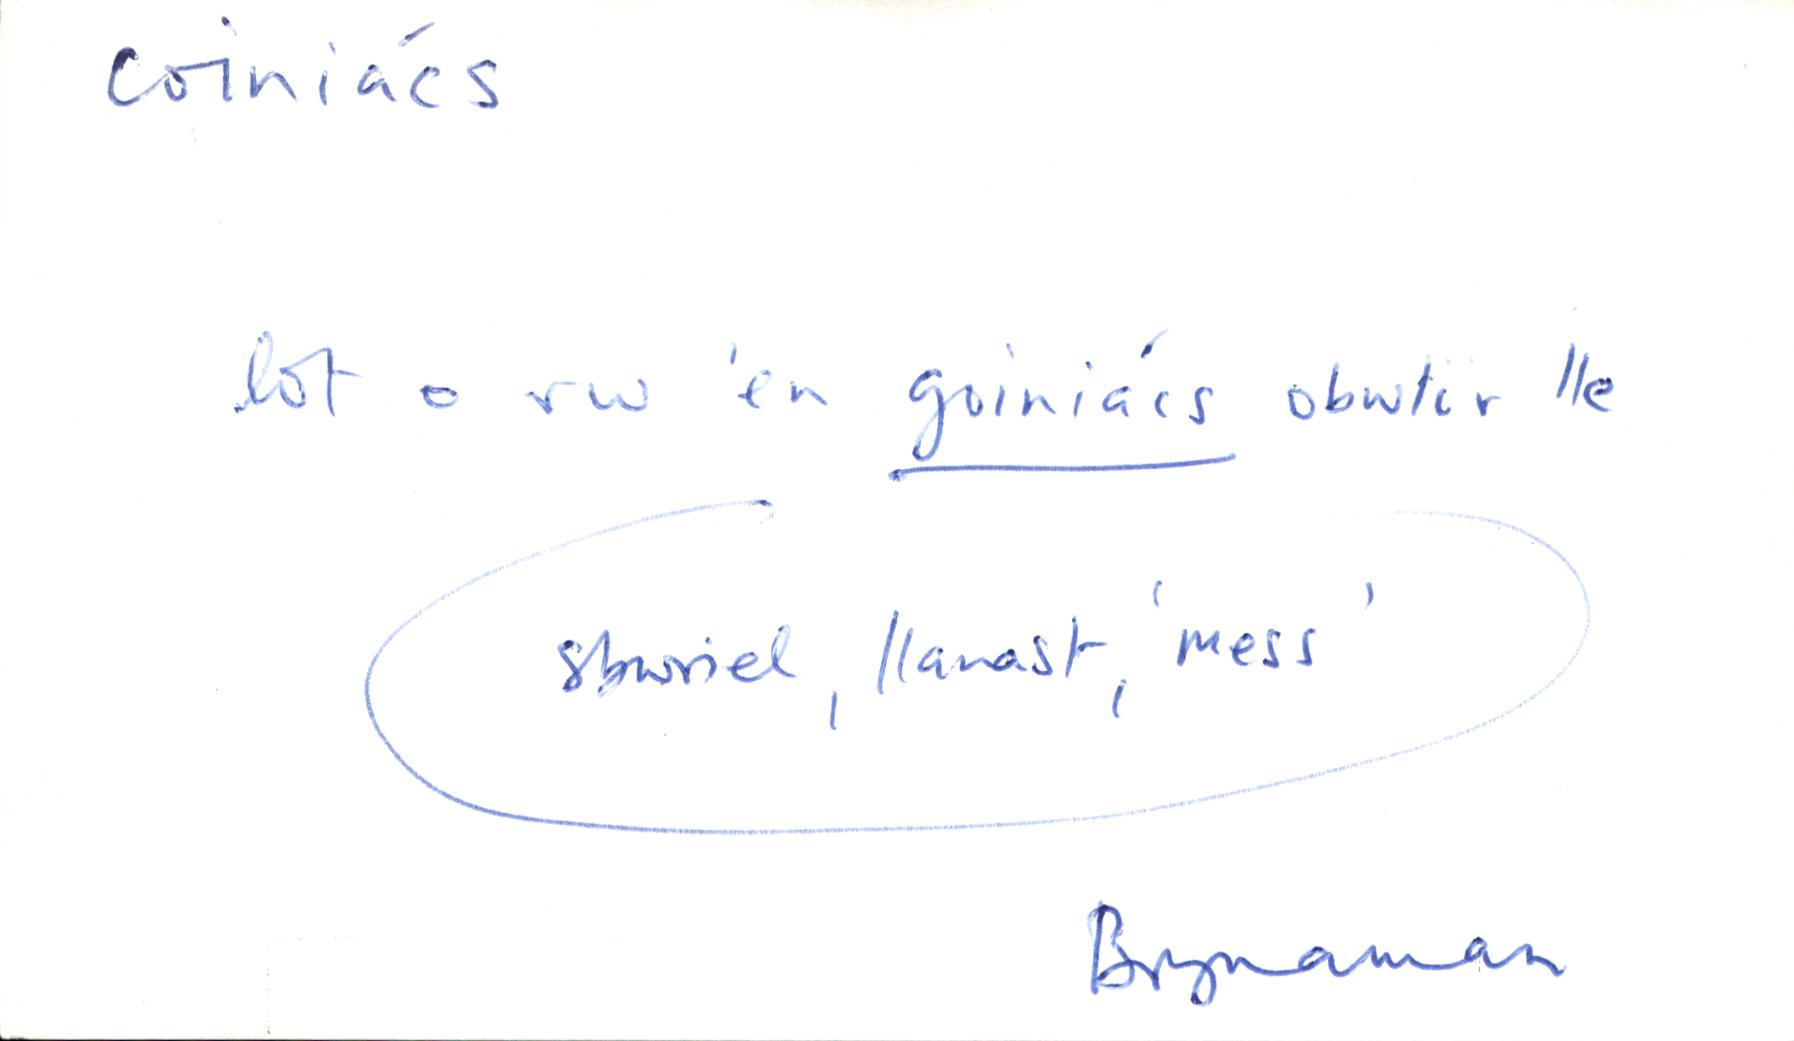 coiniács
lot o rw 'en goiniács obwtir lle
sbwriel, llanast, 'mess'
Brynaman